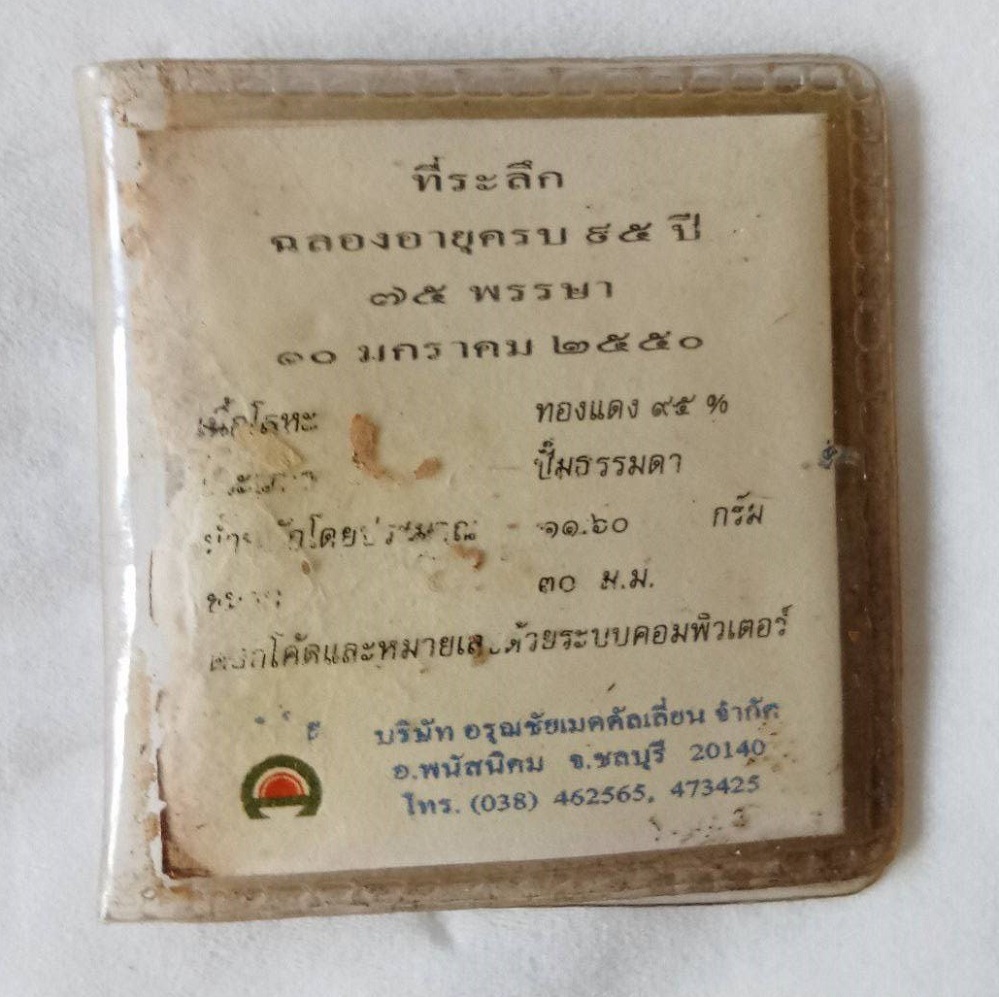 ที่ระลึก
ฉลองอายุครบ ๙๕ ปี
๗๕ พรรษา
๑๐ มกราคม ๒๕๕๐
เนื้อโลหะ ทองแดง ๙๕ %
ปั๊มธรรมดา
น้ำหนักโดยประมาณ ๑๑.๖๐ กรัม
๓๐ ม.ม.
ตอกโค้ดและหมายเลขด้วยระบบคอมพิวเตอร์
บริษัท อรุณชัยเมดคัลเลี่ยน จำกัด
อ.พนัสนิคม จ.ชลบุรี 20140
โทร. (038) 462565, 473425